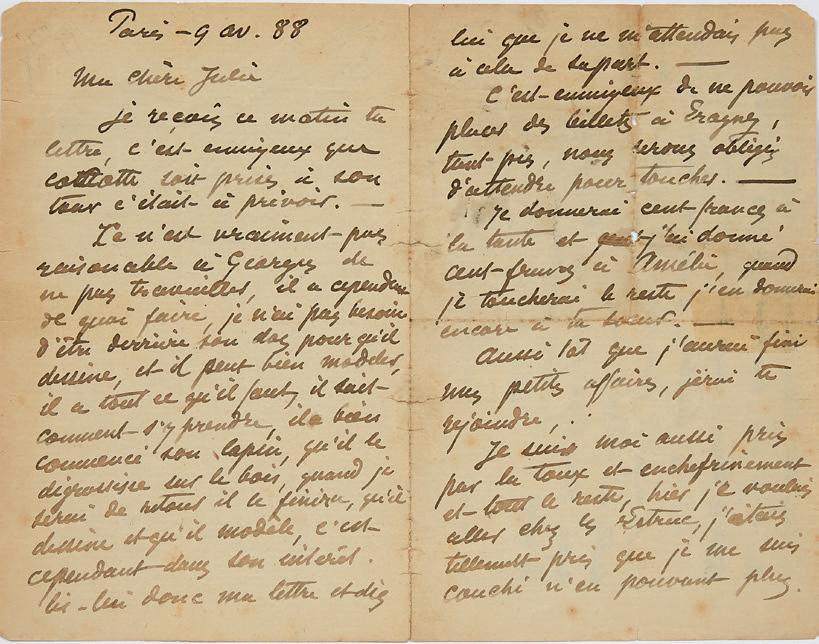 Paris - 9 av. 88
Ma chère Julie
je reçois ce matin ta
lettre, c'est ennuyeux que
soit prise à son
tour c'était à prévoir. —
Ce n'est vraiment pas
raisonable à Georges de
ne pas travailler, il a cependant
de quoi faire, je n'ai pas besoin
d'être derrière son dos pour qu'il
dessine, et il peut bien modeler,
il a tout ce qu'il faut, il sait
comment s'y prendre, il a bien
commencé son lapin, qu'il le
dégrossisse sur le bois, quand je
serai de retour il le finira, qu'il
dessine et qu'il modèle, c'est
cependant dans son intérêt.
lis-lui donc ma lettre et dis
lui que je ne m'attendais pas
à cela de sa part. —
C'est ennuyeux de ne pouvoir
placer des billets à Eragny,
tant pis, nous serons obligés
d'attendre pour toucher. —
Je donnerai cent francs à
la tante et j'ai donné
cent francs à Amélie, quand
je toucherai le reste j'en donnerai
encore à ta soeur. —
Aussitôt que j'aurai fini
mes petites affaires, j'irai te
rejoindre,
Je suis moi aussi pris
par la toux et enchefrinement
et tout le reste, hier je voulais
aller chez les Estruc, j'étais
tellement pris que je me suis
couché n'en pouvant plus.